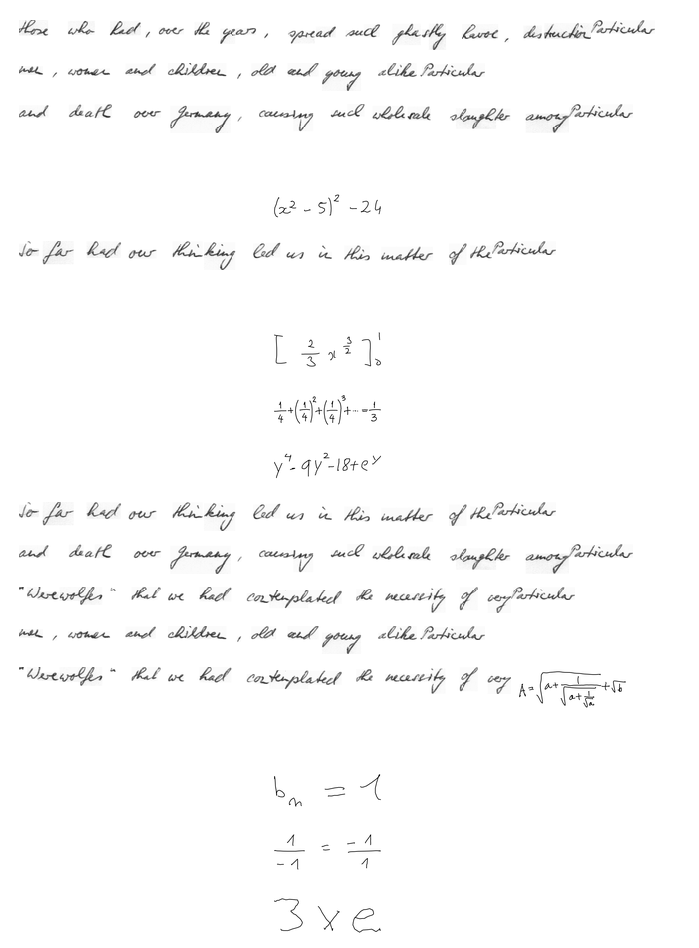 those who had, over the years, spread such ghastly havoc, destruction Particular
men, women and children, old and young alike Particular
and death over Germany, causing such wholesale slaughter among Particular
(x² - 5)² - 24
So far had our thinking led us in this matter of the Particular
[ 2/3 x^(3/2) ]₀¹
1/4 + (1/4)² + (1/4)³ + ... = 1/3
y⁴ - 9y² - 18 + e^y
So far had our thinking led us in this matter of the Particular
and death over Germany, causing such wholesale slaughter among Particular
"Werewolfes" that we had contemplated the necessity of very Particular
men, women and children, old and young alike Particular
"Werewolfes" that we had contemplated the necessity of very A = √(a + 1/√(a + 1/√a)) + √b
bₙ = 1
1/-1 = -1/1
3 x e